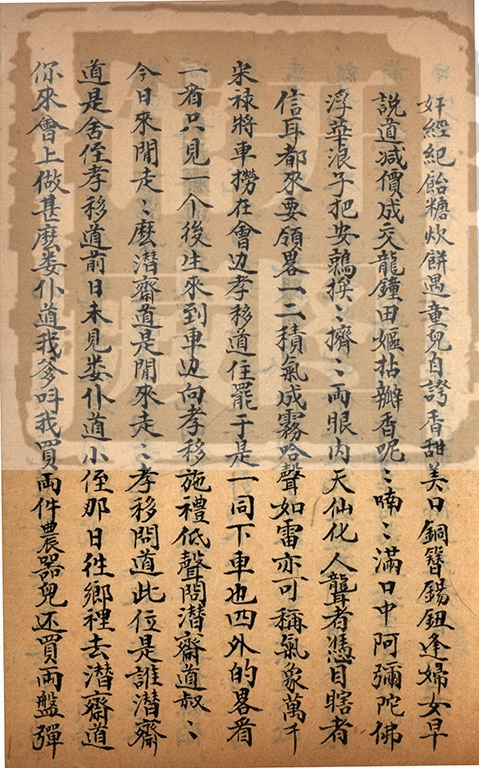 奸經紀飴糖炊餅遇童兒自誇香甜美口銅簪錫鈕逢婦女早
說道减價成交龍鐘田嫗拈瓣香呢〻喃〻滿口中阿彌陀佛
浮華浪子把安鶉撲〻擠〻兩眼內天仙化人聾者憑目瞎者
信耳都來要領畧一二積氣成霧哈聲如雷亦可稱氣象萬千
宋禄將車撈在會边孝移道住罷于是一同下車也四外的畧看
一看只見一个後生來到車边向孝移施禮低聲問潜齋道叔〻
今日來閒走〻麽潜齋道是閒來走〻孝移問道此位是誰潜齋
道是舍侄孝移道前日未見娄仆道小侄那日徃鄉裡去潜齋道
你來會上做甚麽娄仆道我爹呌我買両件農器兒还買両盤彈